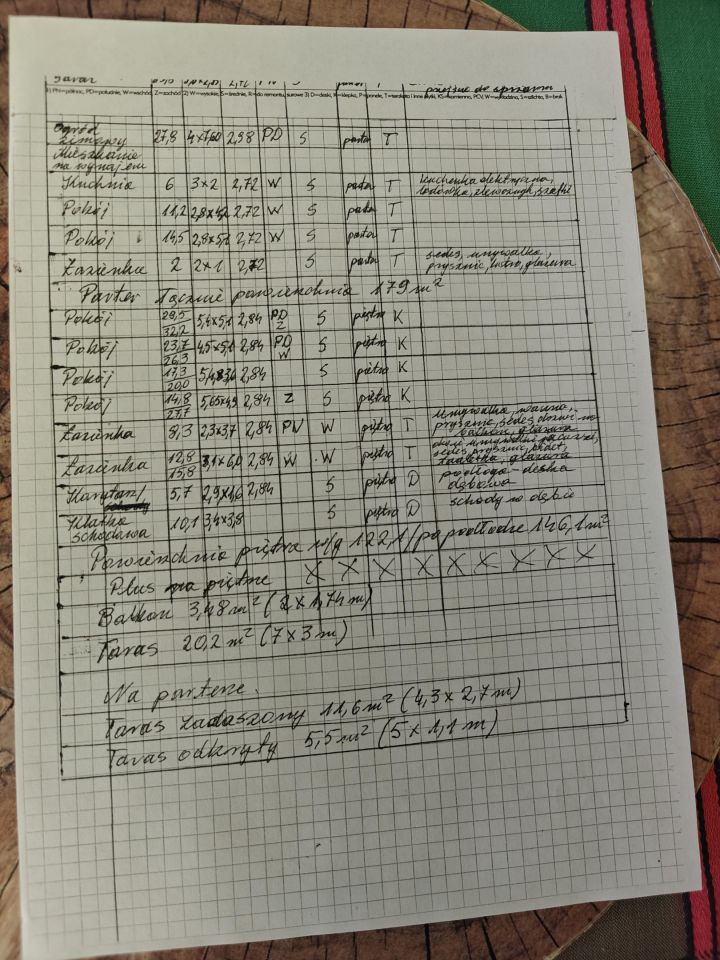 Taras
przejście do
1) PN=północ, PD=południe, W=wschód, Z=zachód 2) W=wysokie, S=średnie, R=do remontu, surowe 3) D=deski, K=klepka, P=panele, T=terakota i inne płytki, KS=kamienna, PCV, W=wykładzina, S=szlichta, B=brak
Ogród zimowy 27,8 4x7,60 2,98 PD S parter T
Mieszkanie na wynajem
Kuchnia 6 3x2 2,72 W S parter T kuchenka elektryczna, lodówka, zlewozmyk, szafki
Pokój 11,2 2,8x4,2 2,72 W S parter T
Pokój 14,5 2,8x5,1 2,72 W S parter T
Łazienka 2 2x1 2,72 S parter T sedes, umywalka, prysznic, lustro, glazura
Parter Łącznie powierzchnia 179 m²
Pokój 28,5 / 32,2 5,4x5,1 2,84 PD Z S piętro K
Pokój 23,7 / 26,3 4,5x5,1 2,84 PD W S piętro K
Pokój 17,3 / 20,0 2,84 S piętro K
Pokój 14,8 / 27,7 5,65x4,9 2,84 Z S piętro K
Łazienka 8,3 2,3x3,7 2,84 PN W W piętro T umywalka, wanna, prysznic, sedes, drzwi na balkon, glazura
Łazienka 12,8 / 15,8 2,84 W W piętro T sedes, prysznic, bidet, toaletka, glazura
Korytarz/ 5,7 2,9x1,6 2,84 S piętro D podłoga - deska dębowa
Klatka schodowa 10,1 3,4x3,8 S piętro D schody w dębie
Powierzchnia piętra w/g 122,1 / po podłodze 146,1 m²
Plus na piętrze X X X X X X X X X
Balkon 3,48 m² (2 x 1,74 m)
Taras 20,2 m² (7 x 3 m)
Na parterze.
Taras zadaszony 11,6 m² (4,3 x 2,7 m)
Taras odkryty 5,5 m² (5 x 1,1 m)